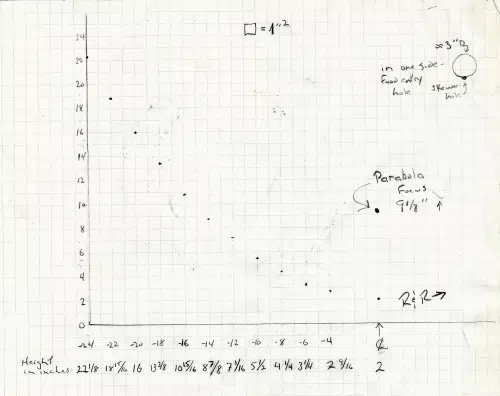 □ = 1"²
≈ 3" ∅
in one side -
Food entry
hole
skewer
hole
24
20
18
16
14
12
10
8
6
4
2
0
Parabola
Focus
9 1/8" ↑
R&R →
-24 -22 -20 -18 -16 -14 -12 -10 -8 -6 -4 ℄
Height
in inches 22 1/8 18 15/16 16 13 3/8 10 15/16 8 7/8 7 3/16 5 1/2 4 1/4 3 1/4 2 9/16 2